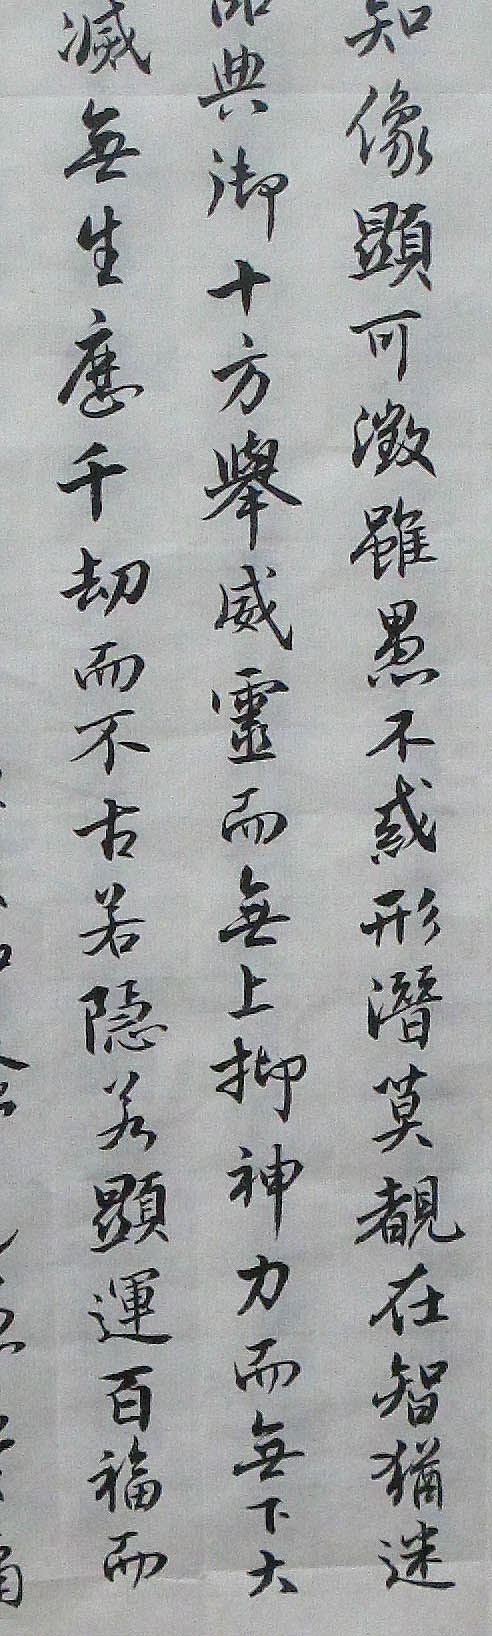 知像顯可徵雖愚不惑形潛莫覩在智猶迷
典御十方舉威靈而無上抑神力而無下大
滅無生歷千劫而不古若隱若顯運百福而